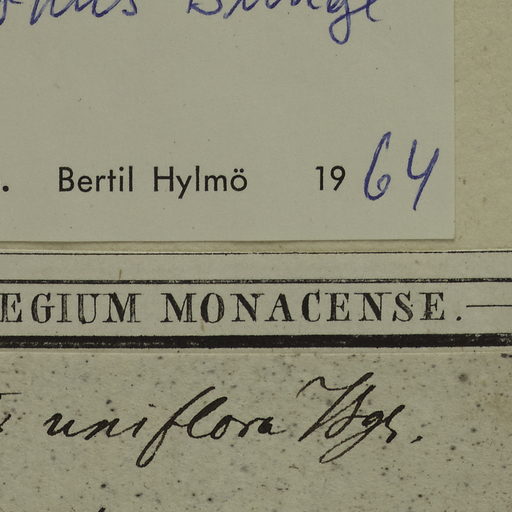 Bunge
. Bertil Hylmö 1964
EGIUM MONACENSE.
uniflora Bge.